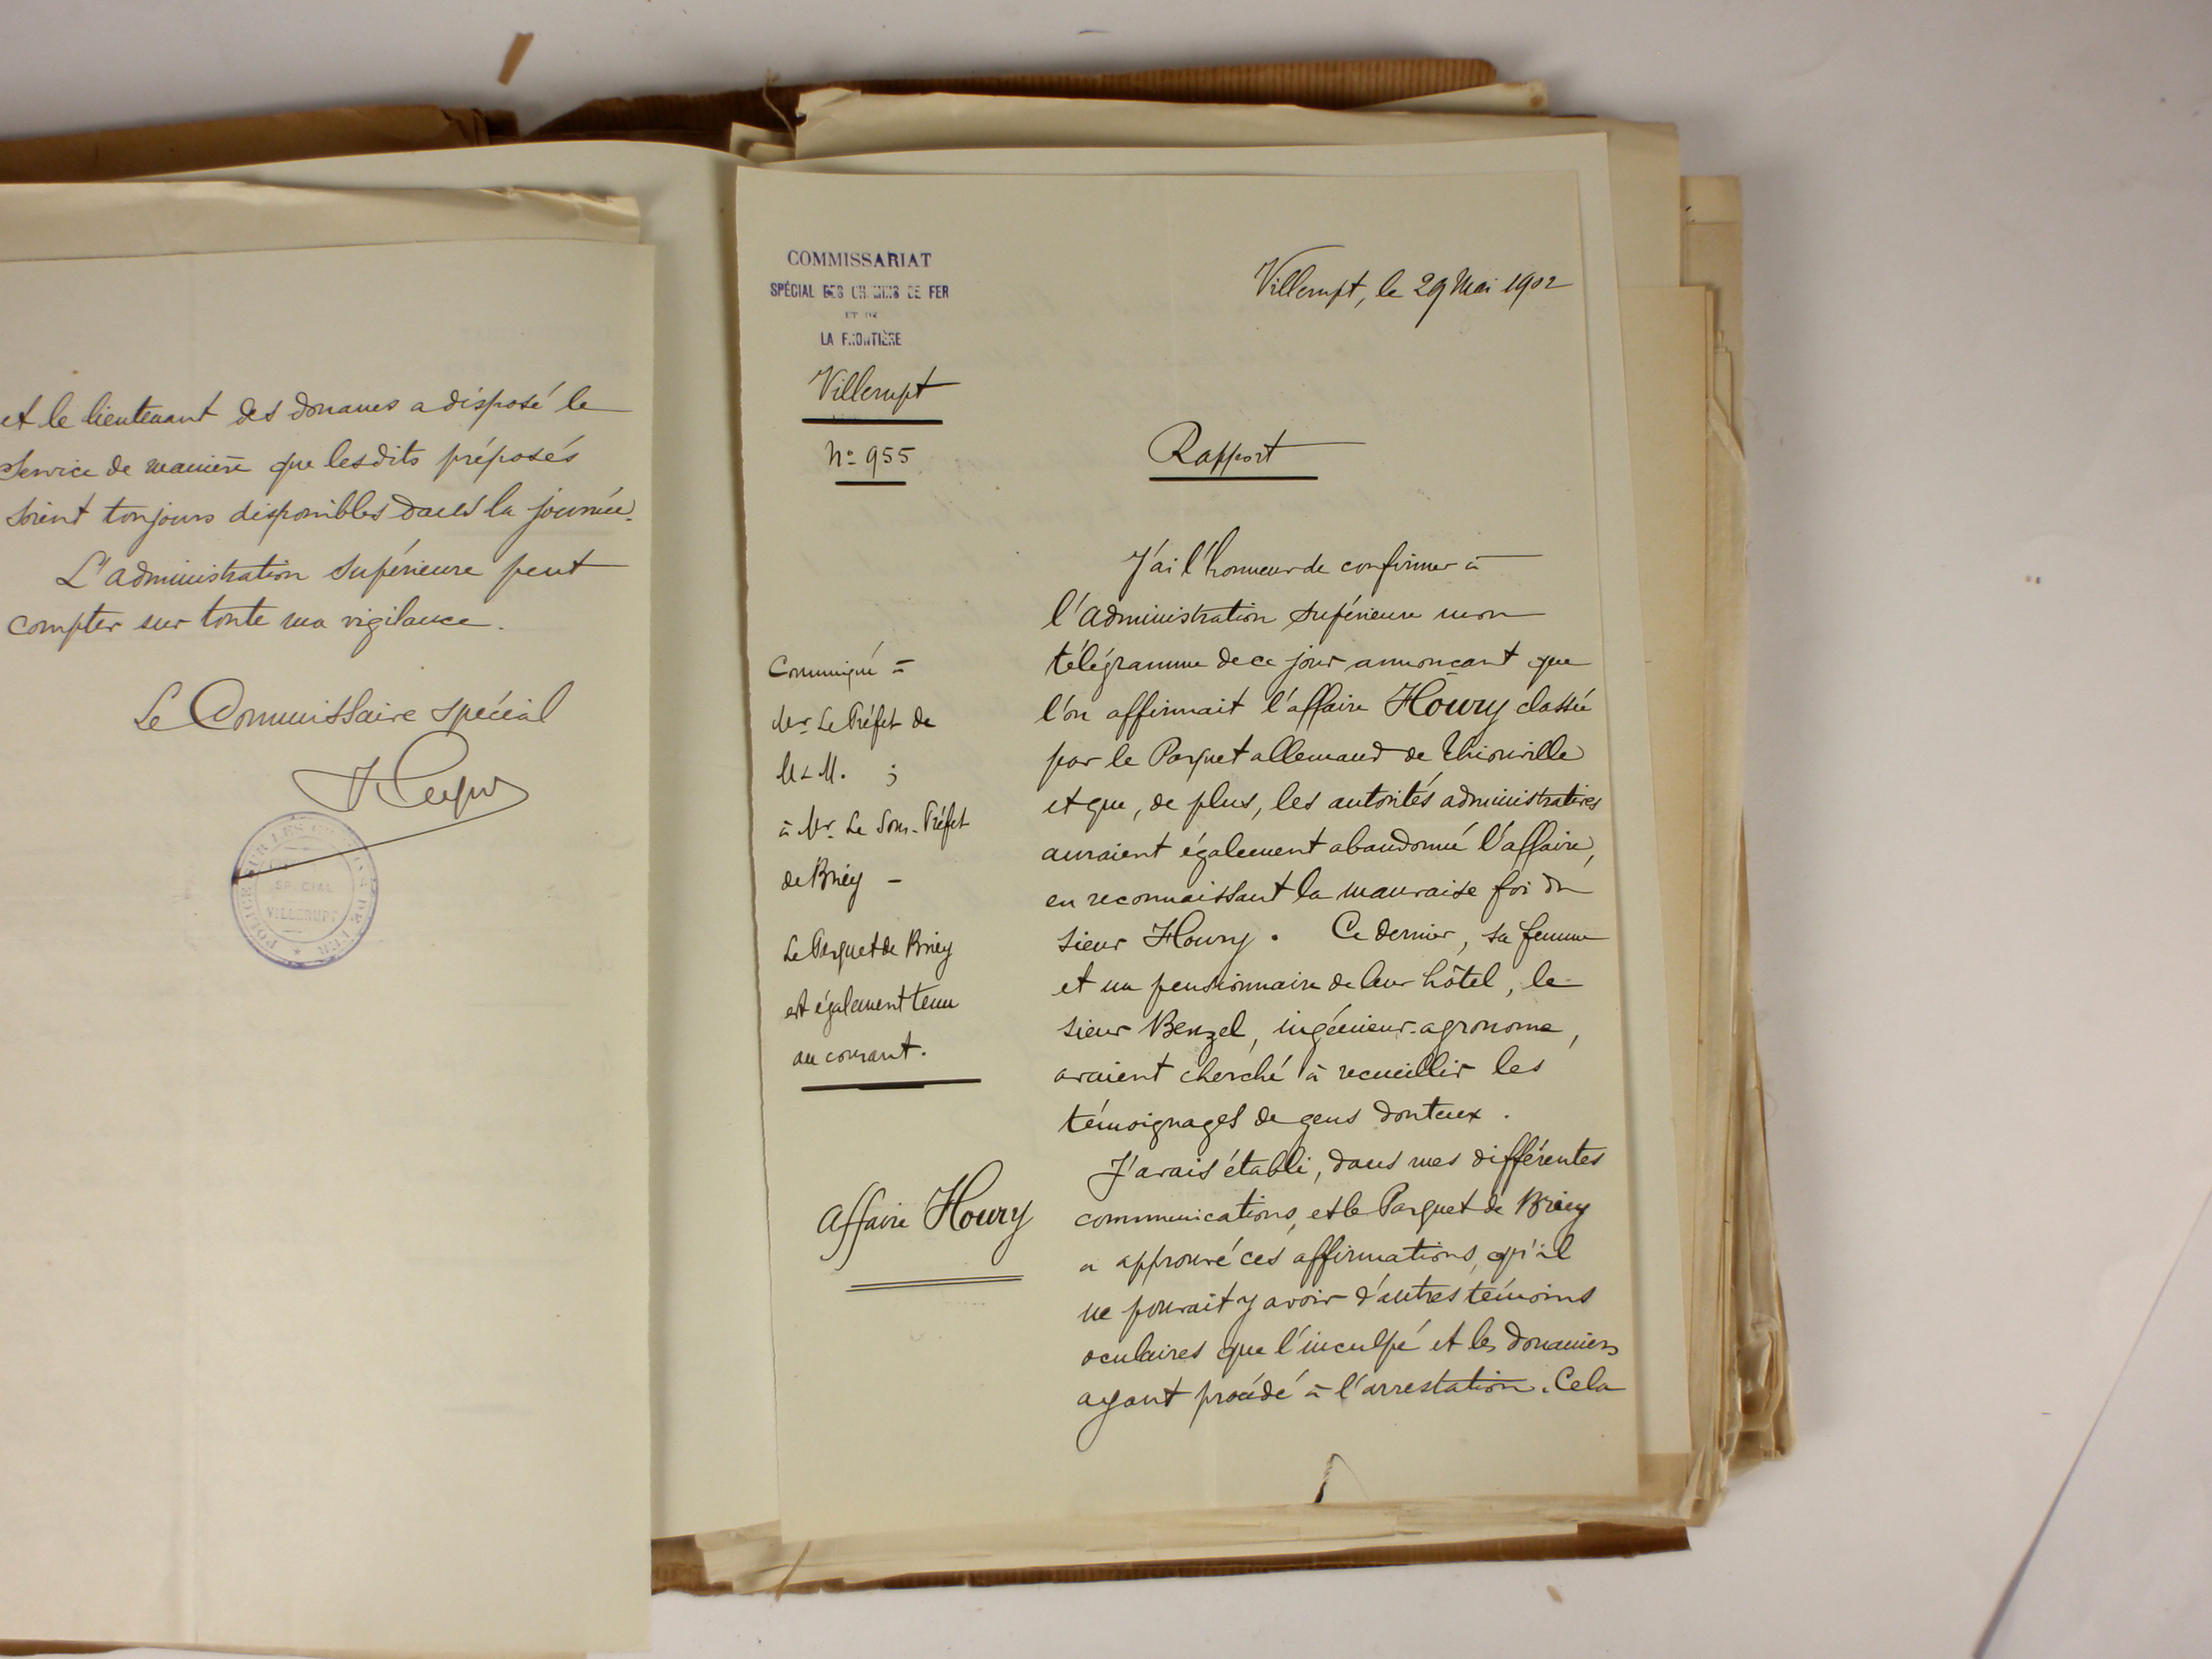 et le lieutenant des douanes a disposé le
service de manière que lesdits préposés
soient toujours disponibles dans la journée.
L'administration supérieure peut
compter sur toute ma vigilance.
Le Commissaire spécial
POLICE SUR LES CHEMINS DE FER
SPECIAL
VILLERUPT
COMMISSARIAT
SPÉCIAL DES CHEMINS DE FER
ET DE
LA FRONTIÈRE
Villerupt
No 955
Villerupt, le 29 Mai 1902
Rapport
J'ai l'honneur de confirmer à
l'administration supérieure mon
télégramme de ce jour annonçant que
l'on affirmait l'affaire Howry classée
par le Parquet allemand de Thionville
et que, de plus, les autorités administratives
auraient également abandonné l'affaire,
en reconnaissant la mauvaise foi du
sieur Howry. Ce dernier, sa femme
et un pensionnaire de leur hôtel, le
sieur Benzel, ingénieur-agronome,
avaient cherché à recueillir les
témoignages de gens douteux.
J'avais établi, dans mes différentes
communications, et le Parquet de Briey
a approuvé ces affirmations, qu'il
ne pouvait y avoir d'autres témoins
oculaires que l'inculpé et les douaniers
ayant procédé à l'arrestation. Cela
Communiqué à
Mr. Le Préfet de
M & M. ;
à Mr. Le Sous-Préfet
de Briey -
Le Parquet de Briey
est également tenu
au courant.
Affaire Howry